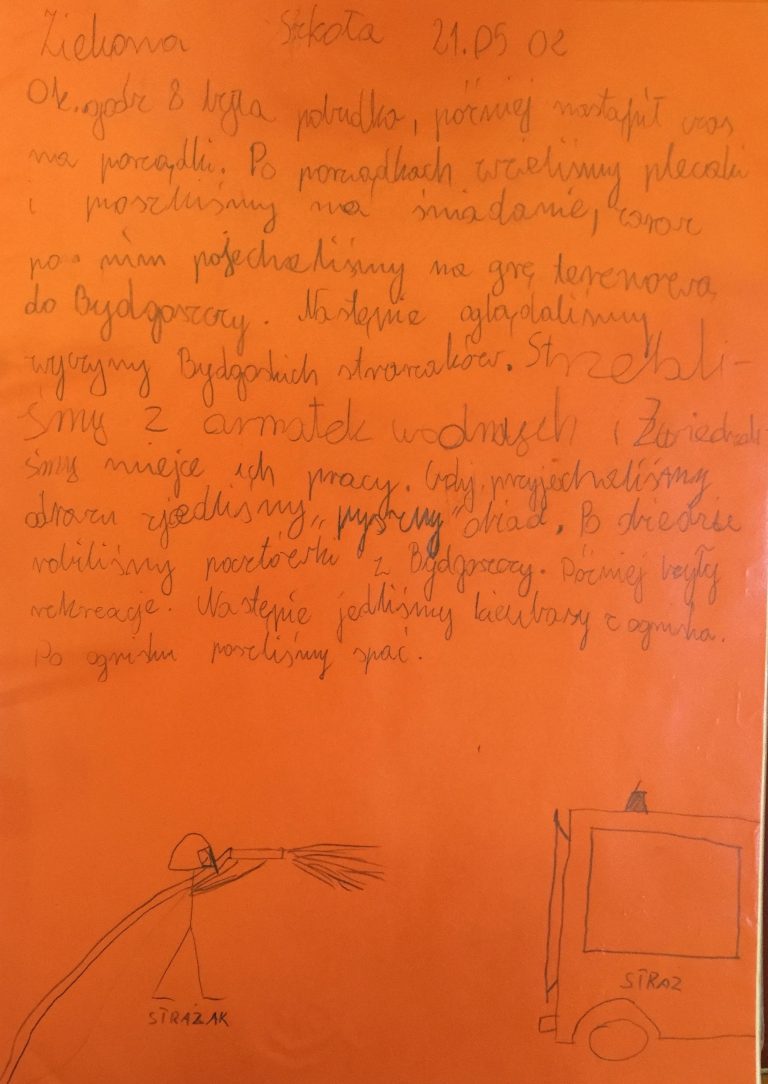 Zielona Szkoła 21.05 02
Ok. godz 8 była pobudka, później nastąpił czas
na porządki. Po porządkach wzieliśmy plecaki
i poszliśmy na śniadanie, zaraz
po nim pojechaliśmy na grę terenową
do Bydgoszczy. Następnie oglądaliśmy
wyczyny Bydgoskich strarzaków. Strzelali-
śmy z armatek wodnych i Zwiedzali
śmy miejce ich pracy. Gdy przyjechaliśmy
odrazu zjedliśmy „pyszny" obiad. Po obiedzie
robiliśmy pocztówki z Bydgoszczy. Później były
rekreacje. Następie jedliśmy kieubasy z ogniska.
Po ognisku poszliśmy spać.
STRAŻAK
STRAZ